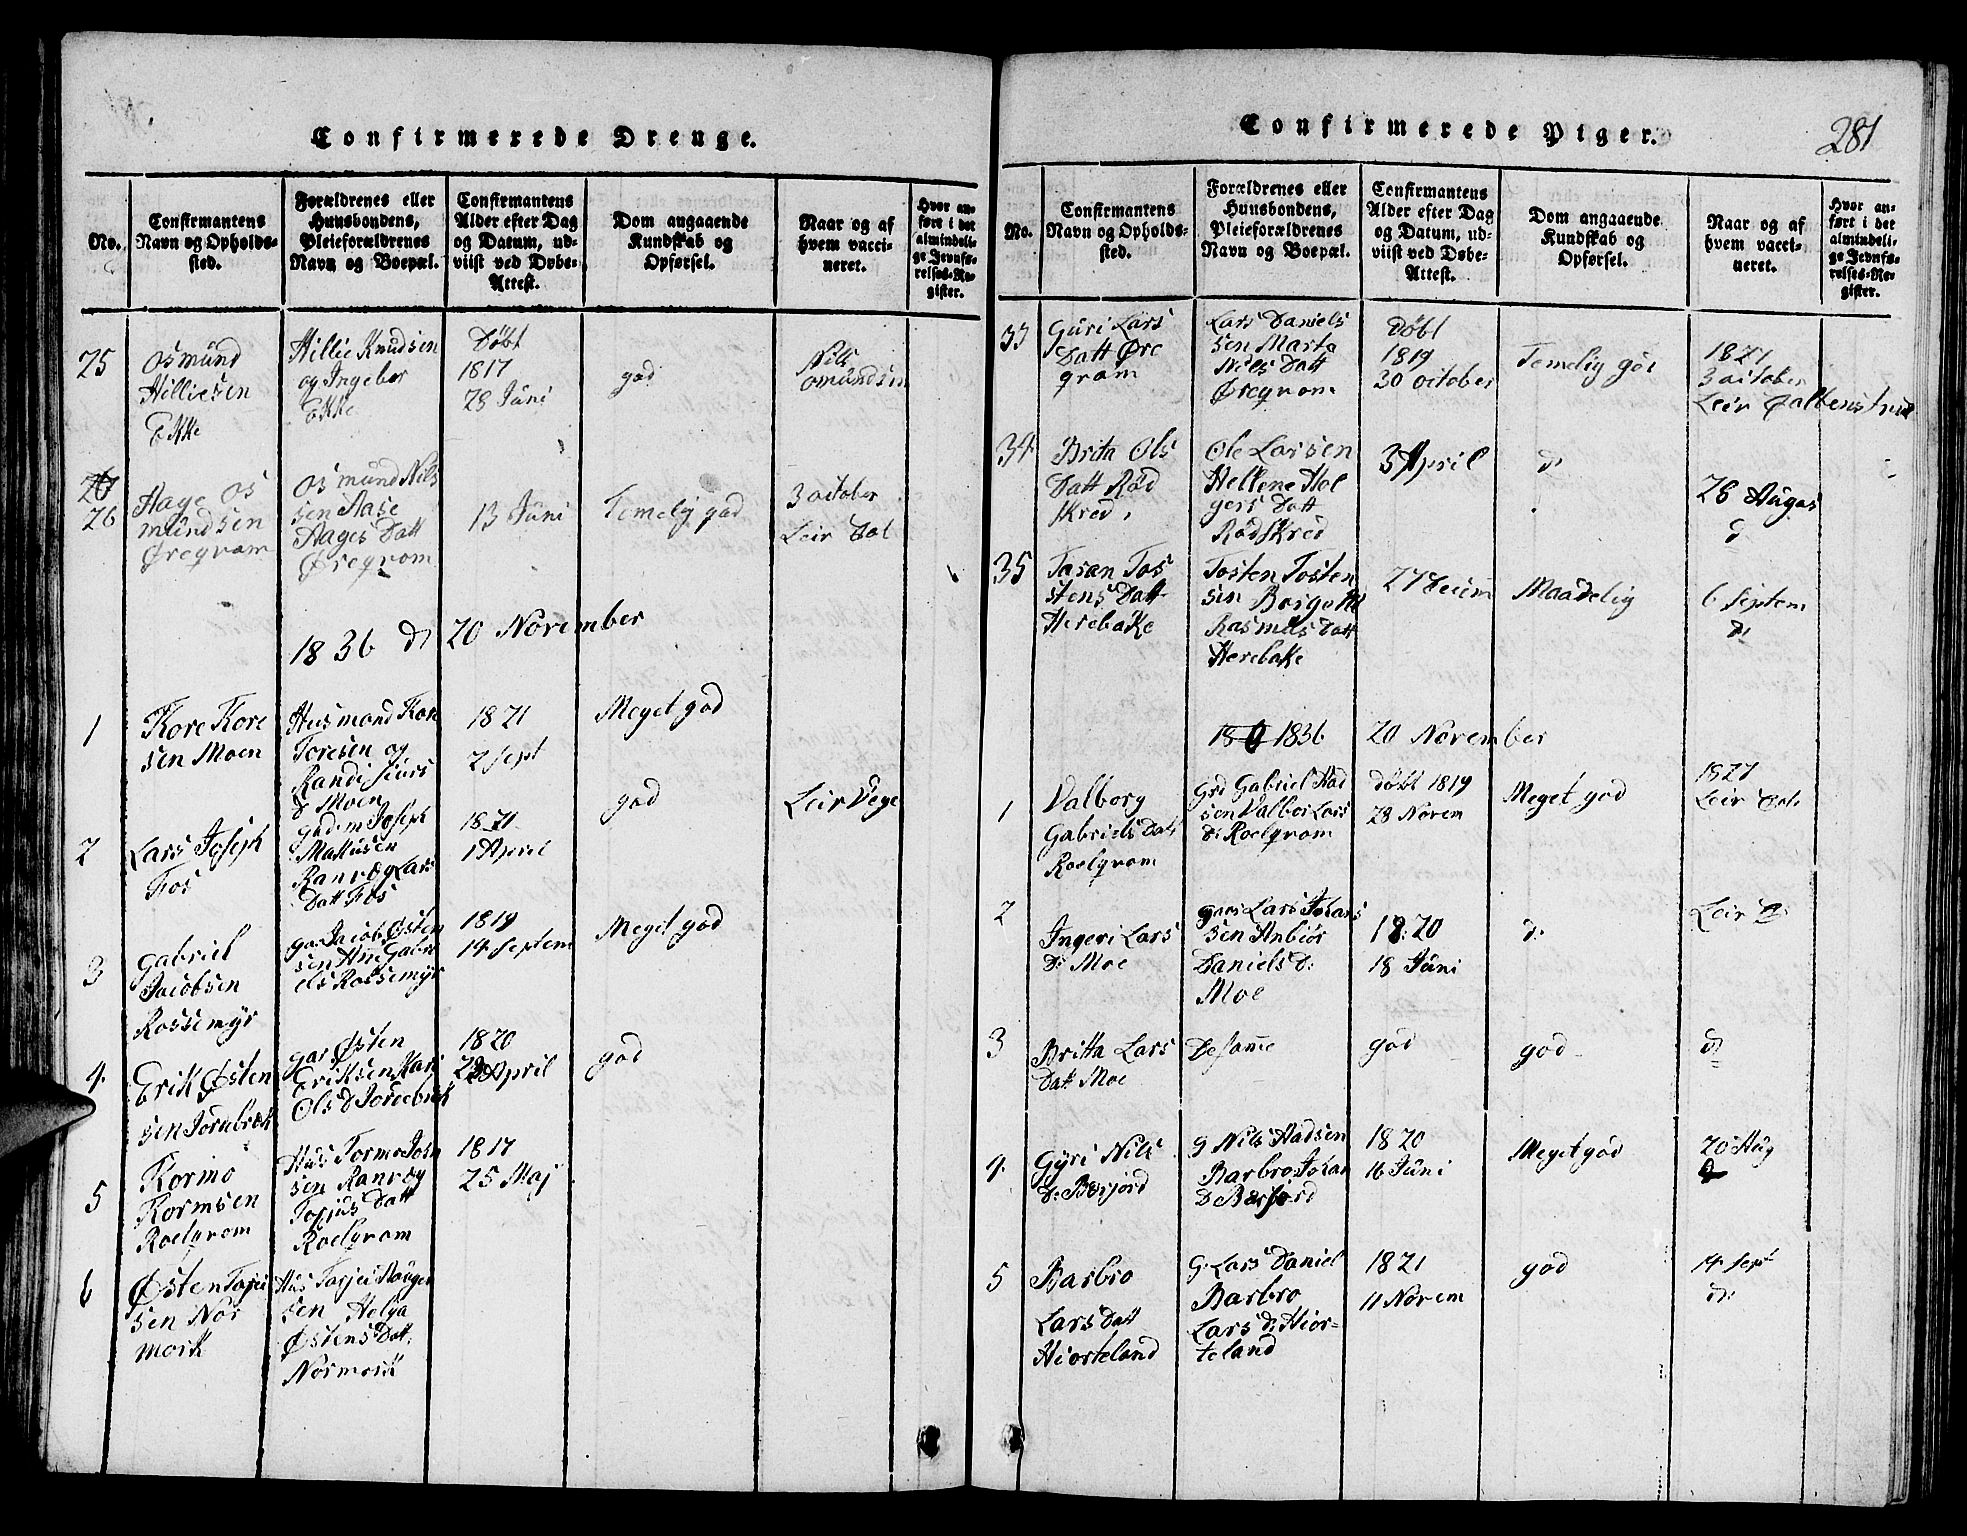 Confirmerede Drenge.
No.
Confirmantens
Navn og Opholds-
sted.
Forældrenes eller
Huusbondens,
Pleieforældrenes
Navn og Boepæl.
Confirmantens
Alder efter Dag
og Datum, ud-
viist ved Døbe-
Attest.
Dom angaaende
Kundskab og
Opførsel.
Naar og af
hvem vacci-
neret.
Hvor an-
ført i det
almindeli-
ge Jevnfø-
relses-Re-
gister.
25
Osmund
Hilliesen
Eikke
Hillie Knudsen
og Ingebor
Eikke
Døbt
1817
28 Juni
god
Nils
omundsen
26
Aage Os
mundsen
Øregram
Osmund Nils
sen Aase
Aages Datt
Øregram
13 Juni
Temelig god
3 october
Leir Dal
1836 d 20 November
1
Tore Tore
sen Moen
Husmand Tore
Toresen og
Randi Siurs
d Moen
1821
2 Sept
Meget god
2
Lars Joseph
Fos
Gadem Joseph
Mattisen
Ranvæg Lars
Datt Fos
1821
1 April
god
Leir Vege
3
Gabriel
Jacobsen
Rossemyr
gar Jacob Østen
sen Ane Gabri
els Rossemyr
1819
14 Septem
Meget god
4
Erik Østen
sen Jornbræk
gar Østen
Eriksen Mari
Ols D Jordebræk
1820
23 April
god
5
Tormo
Tormsen
Roelgrom
Hus Tormo Torm
sen Ranvæg
Torjus Datt
Roelgrom
1817
25 Maj
6
Østen Torjei
sen Nor
mork
Hus Torjei Aanger
sen Helga
Østens Datt
Normork
Confirmerede Piger.
281
No.
Confirmantens
Navn og Opholds-
sted.
Forældrenes eller
Huusbondens,
Pleieforældrenes
Navn og Boepæl.
Confirmantens
Alder efter Dag
og Datum, ud-
viist ved Døbe-
Attest.
Dom angaaende
Kundskab og
Opførsel.
Naar og af
hvem vacci-
neret.
Hvor an-
ført i det
almindeli-
ge Jevnfø-
relses-Re-
gister.
33
Guri Lars
Datt Øre
gram
Lars Daniels
sen Marta
Nils Datt
Øregrom
Døbt
1819
30 october
Temelig god
1821
3 october
Leir
34
Brita Ols
Datt Rød
skred
Ole Larsen
Hellene Hol
gers Datt
Rødskred
3 April
d
26 Augus
d
35
Taran Tos
stens Datt
Herebake
Tosten Tosten
sen Borgeld
Rasmus Datt
Herebake
27 Decem
Maadelig
6 Septem
d
1836 20 November
1
Valborg
Gabriels Datt
Roelgrom
Grd Gabriel Aad
sen Valbor Lars
D: Roelgrom
døbt 1819
28 Novem
Meget god
1827
Leir Dal
2
Ingeri Lars
D: Moe
gaar Lars Johans
sen Anbiør
Daniels D:
Moe
1820
18 Juni
d:
Leir D:
3
Britta Lars
Datt Moe
Desamme
god
god
d
4
Gyri Nils
D: Berjord
g Nils Aadsen
Barbro Johan
D Berjord
1820
16 Juni
Meget god
20 Aug
5
Barbro
Lars Datt
Hiorteland
G: Lars Daniel
Barbro
Lars D: Hior-
teland
1821
11 Novem
god
14 Sept
d: